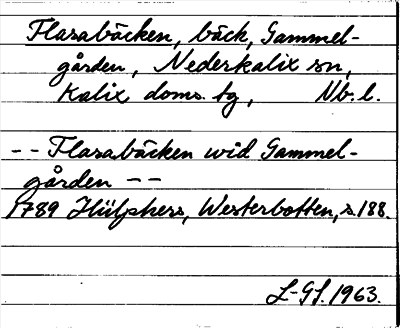 Flarabäcken, bäck, Gammel-
gården, Nederkalix sn,
Kalix doms. tg, Nb.l.
-- Flarabäcken wid Gammel-
gården --
1789 Hülphers, Westerbotten, s.188.
L-GS. 1963.